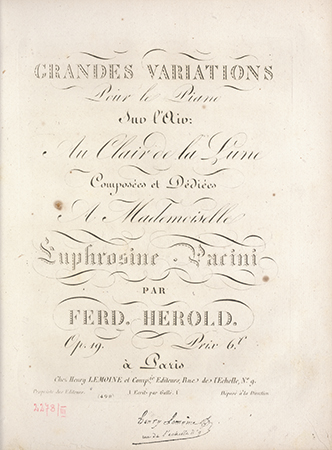 GRANDES VARIATIONS
Pour le Piano
Sur l'Air:
Au Clair de la Lune
Composées et Dédiées
A Mademoiselle
Euphrosine Pacini
PAR
FERD. HEROLD.
Op. 19. Prix 6.f
à Paris
Chez Henry LEMOINE et Comp.e Editeurs, Rue de l'Echelle, N.o 9.
Propriété des Editeurs Déposé à la Direction
2278/III
Henry Lemoine
rue de l'echelle n.o 9